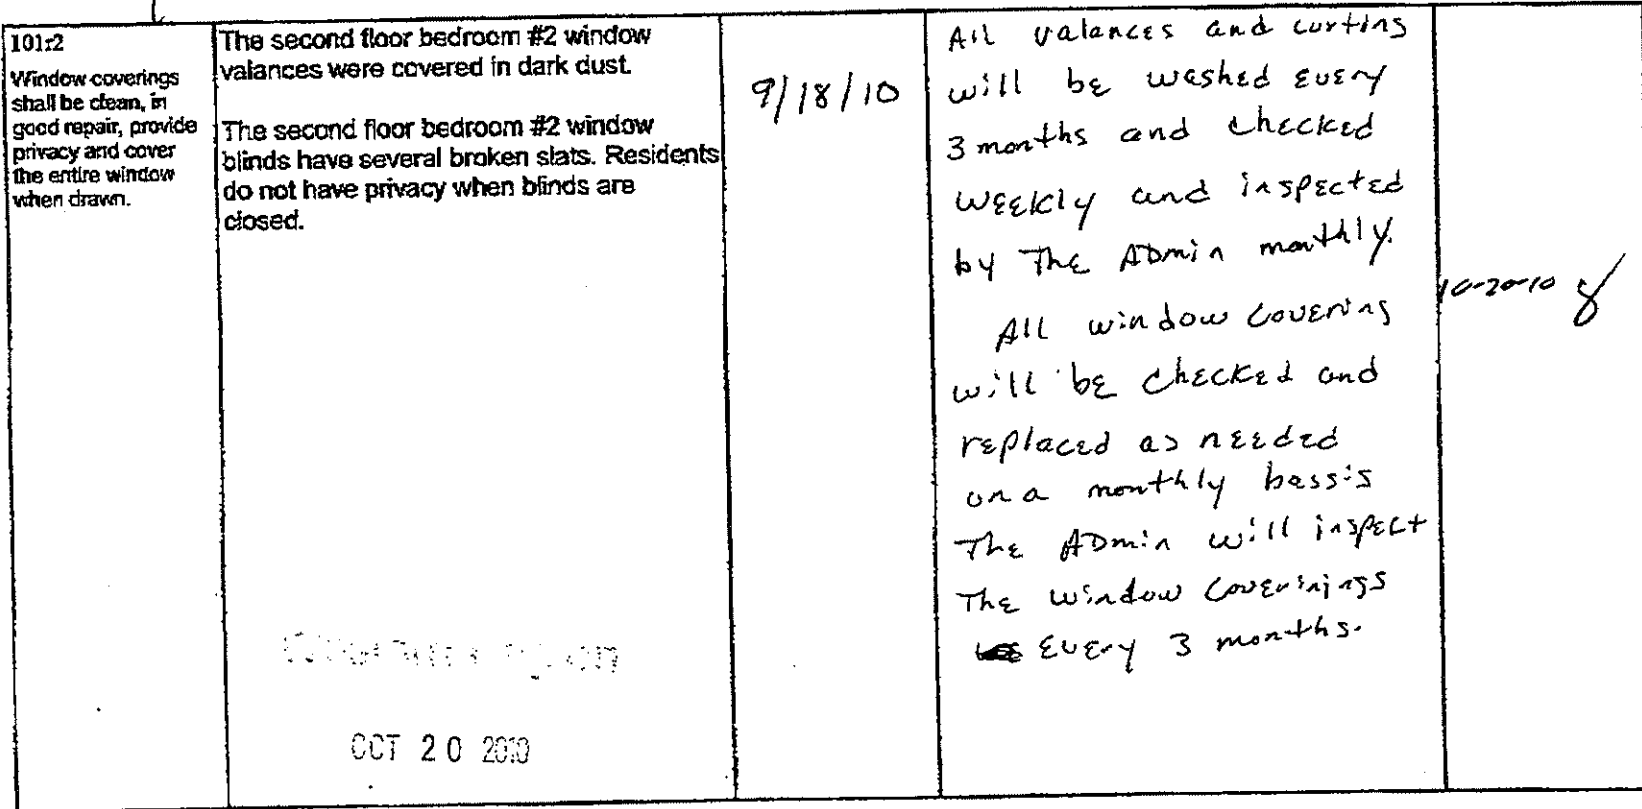 101:2
Window coverings
shall be clean, in
good repair, provide
privacy and cover
the entire window
when drawn.
The second floor bedroom #2 window
valances were covered in dark dust.
The second floor bedroom #2 window
blinds have several broken slats. Residents
do not have privacy when blinds are
closed.
OCT 20 2010
9/18/10
All valances and curtins
will be washed every
3 months and checked
weekly and inspected
by The Admin monthly.
All window coverins
will be checked and
replaced as needed
on a monthly bassis
The Admin will inspect
The window coverinings
every 3 months.
10-20-10